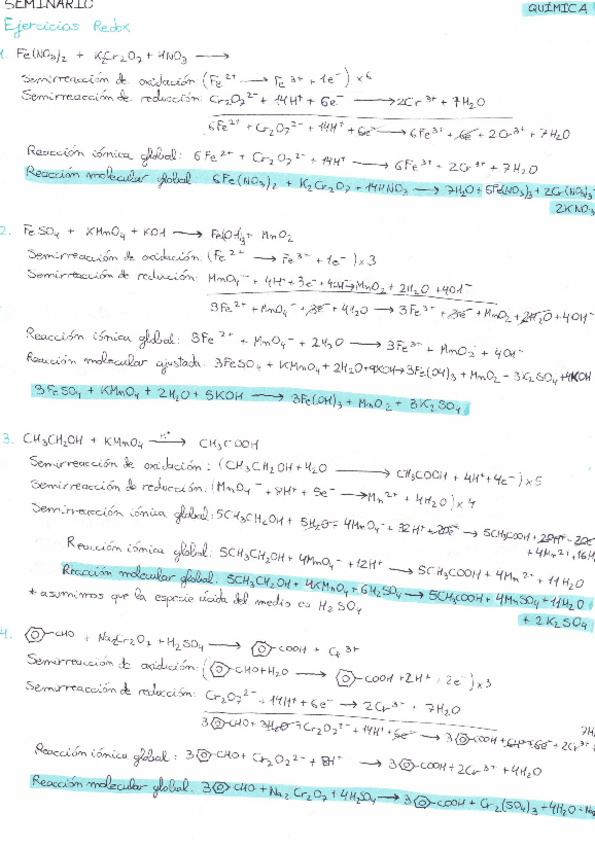 SEMINARIO
QUÍMICA
Ejercicios Redox
1. Fe(NO3)2 + K2Cr2O7 + HNO3 ⟶
Semirreacción de oxidación (Fe²⁺ ⟶ Fe³⁺ + 1e⁻) x6
Semirreacción de reducción: Cr2O7²⁻ + 14H⁺ + 6e⁻ ⟶ 2Cr³⁺ + 7H2O
6Fe²⁺ + Cr2O7²⁻ + 14H⁺ + 6e⁻ ⟶ 6Fe³⁺ + 6e⁻ + 2Cr³⁺ + 7H2O
Reacción iónica global: 6Fe²⁺ + Cr2O7²⁻ + 14H⁺ ⟶ 6Fe³⁺ + 2Cr³⁺ + 7H2O
Reacción molecular global: 6Fe(NO3)2 + K2Cr2O7 + 14HNO3 ⟶ 7H2O + 6Fe(NO3)3 + 2Cr(NO3)3
2KNO3
2. FeSO4 + KMnO4 + KOH ⟶ Fe(OH)3 + MnO2
Semirreacción de oxidación: (Fe²⁺ ⟶ Fe³⁺ + 1e⁻) x3
Semirreacción de reducción: MnO4⁻ + 4H⁺ + 3e⁻ + 4OH⁻ ⟶ MnO2 + 2H2O + 4OH⁻
3Fe²⁺ + MnO4⁻ + 3e⁻ + 4H2O ⟶ 3Fe³⁺ + 3e⁻ + MnO2 + 2H2O + 4OH⁻
Reacción iónica global: 3Fe²⁺ + MnO4⁻ + 2H2O ⟶ 3Fe³⁺ + MnO2 + 4OH⁻
Reacción molecular ajustada: 3FeSO4 + KMnO4 + 2H2O + 9KOH ⟶ 3Fe(OH)3 + MnO2 - 3K2SO4 + 4KOH
3FeSO4 + KMnO4 + 2H2O + 5KOH ⟶ 3Fe(OH)3 + MnO2 + 3K2SO4
3. CH3CH2OH + KMnO4 ⟶ CH3COOH
Semirreacción de oxidación: (CH3CH2OH + H2O ⟶ CH3COOH + 4H⁺ + 4e⁻) x5
Semirreacción de reducción: (MnO4⁻ + 8H⁺ + 5e⁻ ⟶ Mn²⁺ + 4H2O) x4
Semirreacción iónica global: 5CH3CH2OH + 5H2O + 4MnO4⁻ + 32H⁺ + 20e⁻ ⟶ 5CH3COOH + 20H⁺ + 20e⁻
+ 4Mn²⁺ + 16H
Reacción iónica global: 5CH3CH2OH + 4MnO4⁻ + 12H⁺ ⟶ 5CH3COOH + 4Mn²⁺ + 11H2O
Reacción molecular global: 5CH3CH2OH + 4KMnO4 + 6H2SO4 ⟶ 5CH3COOH + 4MnSO4 + 11H2O
+ 2K2SO4
* asumimos que la especie ácida del medio es H2SO4
4. CHO + Na2Cr2O7 + H2SO4 ⟶ COOH + Cr³⁺
Semirreacción de oxidación: (CHO + H2O ⟶ COOH + 2H⁺ + 2e⁻) x3
Semirreacción de reducción: Cr2O7²⁻ + 14H⁺ + 6e⁻ ⟶ 2Cr³⁺ + 7H2O
3CHO + 3H2O + Cr2O7²⁻ + 14H⁺ + 6e⁻ ⟶ 3COOH + 6H⁺ + 6e⁻ + 2Cr³⁺
Reacción iónica global: 3CHO + Cr2O7²⁻ + 8H⁺ ⟶ 3COOH + 2Cr³⁺ + 4H2O
Reacción molecular global: 3CHO + Na2Cr2O7 + 4H2SO4 ⟶ 3COOH + Cr2(SO4)3 + 4H2O + Na